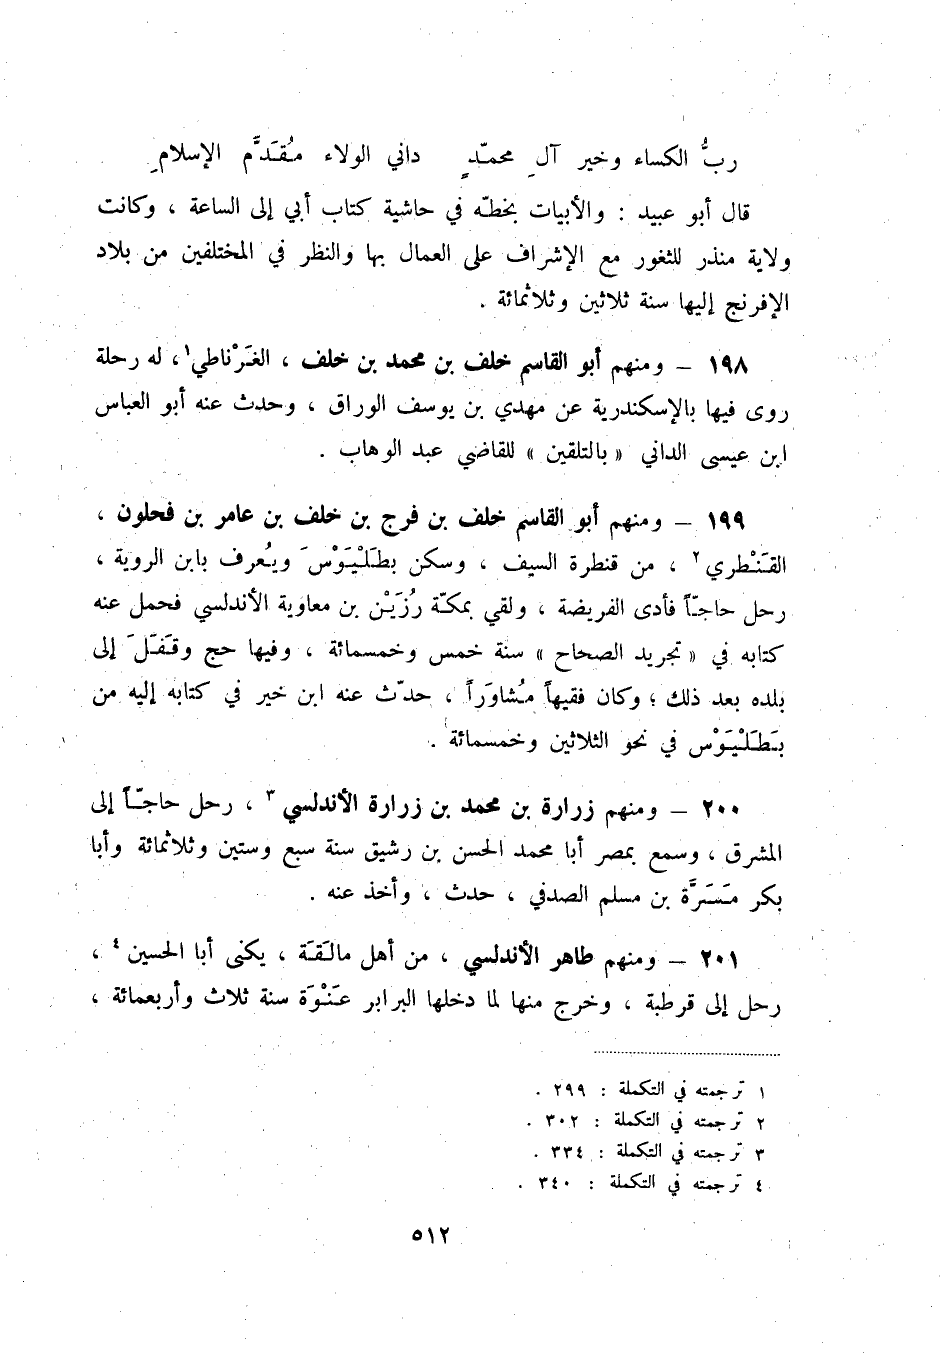 ربُّ الكساء وخير آلِ محمّدٍ داني الولاء مُقَدَّم الإسلامِ
قال أبو عبيد : والأبيات بخطّه في حاشية كتاب أبي إلى الساعة ، وكانت
ولاية منذر للثغور مع الإشراف على العمال بها والنظر في المختلفين من بلاد
الإفرنج إليها سنة ثلاثين وثلاثمائة .
١٩٨ – ومنهم أبو القاسم خلف بن محمد بن خلف ، الغَرْناطي١ ، له رحلة
روى فيها بالإسكندرية عن مهدي بن يوسف الوراق ، وحدث عنه أبو العباس
ابن عيسى الداني « بالتلقين » للقاضي عبد الوهاب .
١٩٩ – ومنهم أبو القاسم خلف بن فرج بن خلف بن عامر بن فحلون ،
القَنْطري٢ ، من قنطرة السيف ، وسكن بطَلْيَوْسَ ويُعرف بابن الروية ،
رحل حاجّاً فأدى الفريضة ، ولقي بمكّة رُزَيْن بن معاوية الأندلسي فحمل عنه
كتابه في « تجريد الصحاح » سنة خمس وخمسمائة ، وفيها حج وقَفَلَ إلى
بلده بعد ذلك ؛ وكان فقيهاً مُشاوَراً ، حدّث عنه ابن خير في كتابه إليه من
بَطَلْيَوْس في نحو الثلاثين وخمسمائة .
٢٠٠ – ومنهم زرارة بن محمد بن زرارة الأندلسي٣ ، رحل حاجّاً إلى
المشرق ، وسمع بمصر أبا محمد الحسن بن رشيق سنة سبع وستين وثلاثمائة وأبا
بكر مَسَرَّة بن مسلم الصدفي ، حدث ، وأخذ عنه .
٢٠١ – ومنهم طاهر الأندلسي ، من أهل مالَقَة ، يكنى أبا الحسين٤ ،
رحل إلى قرطبة ، وخرج منها لما دخلها البرابر عَنْوَة سنة ثلاث وأربعمائة ،
١ ترجمته في التكملة : ٢٩٩ .
٢ ترجمته في التكملة : ٣٠٢ .
٣ ترجمته في التكملة : ٣٣٤ .
٤ ترجمته في التكملة : ٣٤٠ .
٥١٢